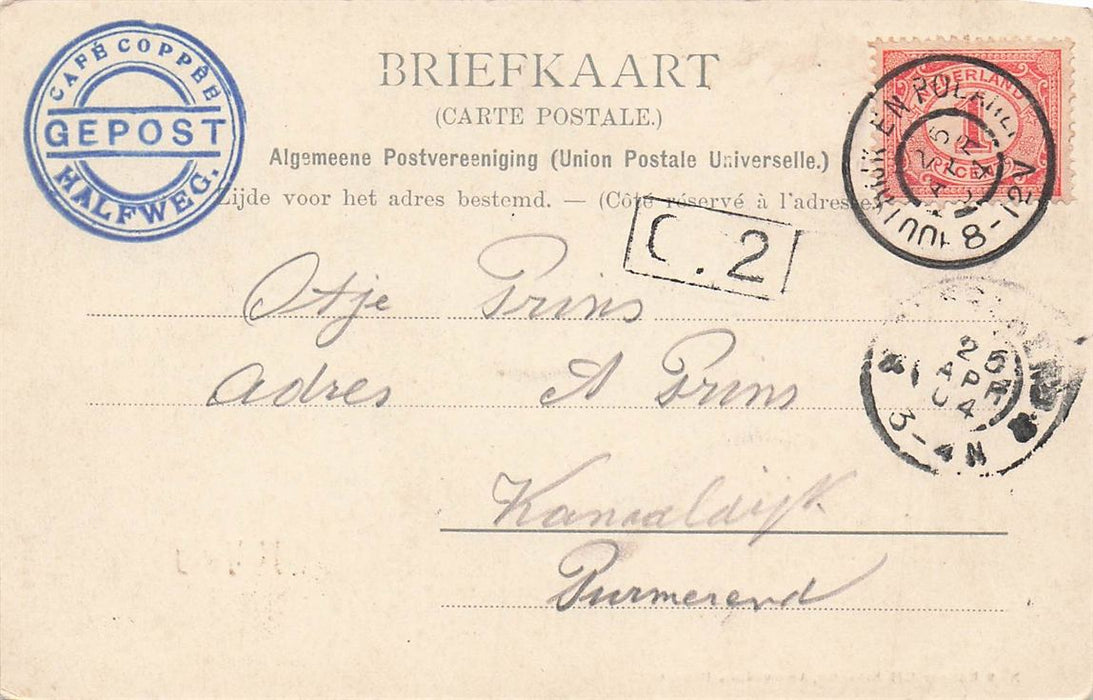 CAFÉ COPPÉE
GEPOST
HALFWEG.
BRIEFKAART
(CARTE POSTALE.)
Algemeene Postvereeniging (Union Postale Universelle.)
Zijde voor het adres bestemd. — (Côté réservé à l'adresse
NEDERLAND
1
CENT
8-12V
C.2
Otje Prins
adres A Prins
Kanaaldijk
Purmerend
25
APR
04
3-4N